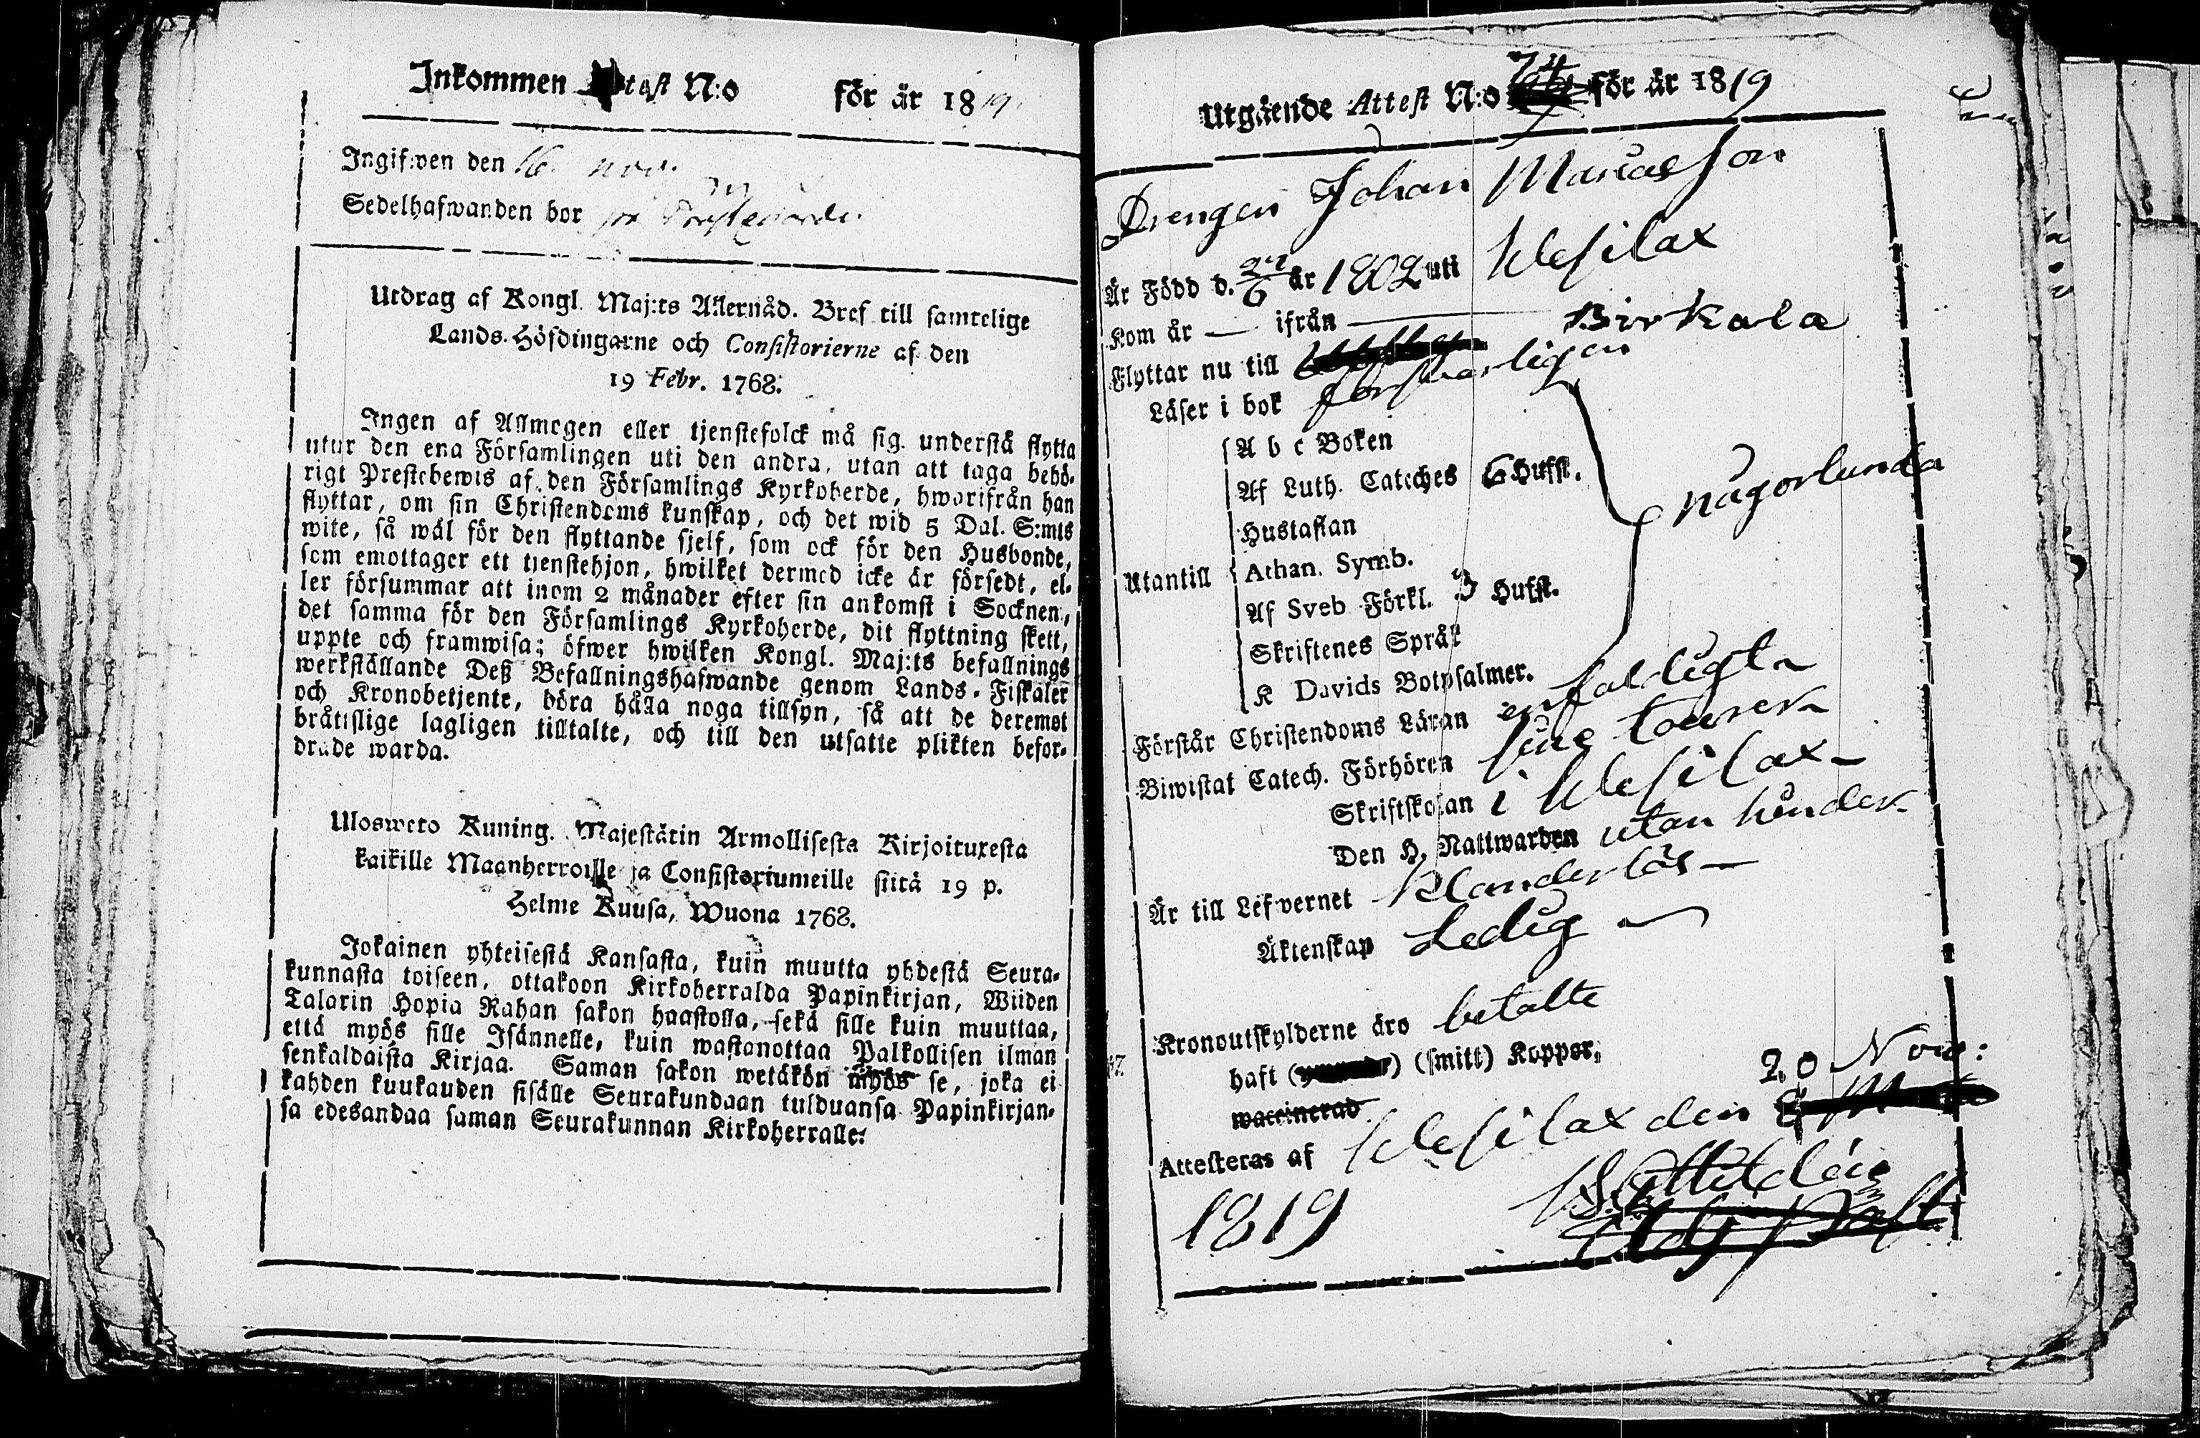 Inkommen Attest N:o för år 1819
Ingifwen den 16 nov.
Sedelhafwanden bor
Utdrag af Kongl. Maj:ts Allernåd. Bref till samtelige
Lands-Höfdingarne och Consistorierne af den
19 Febr. 1768.
Ingen af Allmogen eller tjenstefolck må sig understå flytta
utur den ena Församlingen uti den andra, utan att taga behö-
rigt Prestebewis af den Församlings Kyrkoherde, hwarifrån han
flyttar, om sin Christendoms kunskap, och det wid 5 Dal. S:mts
wite, så wäl för den flyttande sjelf, som ock för den Husbonde,
som emottager ett tjenstehjon, hwilket dermed icke är försedt, el-
ler försummar att inom 2 månader efter sin ankomst i Socknen,
det samma för den Församlings Kyrkoherde, dit flyttning skett,
uppte och framwisa; öfwer hwilken Kongl. Maj:ts befallnings
werkställande Deß Befallningshafwande genom Lands-Fiskaler
och Kronobetjente, böra hålla noga tillsyn, så att de deremot
bråttslige lagligen tilltalte, och till den utsatte plikten befor-
drade warda.
Ulosweto Kuning. Majestätin Armollisesta Kirjoituxesta
kaikille Maanherroille ja Consistoriumeille siitä 19 p.
Helme Kuusa, Wuona 1768.
Jokainen yhteisestä Kansasta, kuin muutta yhdestä Seura-
kunnasta toiseen, ottakoon Kirkoherralda Papinkirjan, Wiiden
Talarin Hopia Rahan sakon haastolla, sekä sille kuin muuttaa,
että myös sille Isännelle, kuin wastanottaa Palkollisen ilman
senkaldaista Kirjaa. Saman sakon wetäkön myös se, joka ei
kahden kuukauden sisälle Seurakundaan tulduansa Papinkirjan-
sa edesandaa saman Seurakunnan Kirkoherralle.
Utgående Attest N:o 74 för år 1819
Drengen Johan Marcusson
Är Född d. 24/6 år 1802 uti Wesilax
Kom år — ifrån —
Flyttar nu till Birkala
Läser i bok försvarligen
A b c Boken
Af Luth. Cateches 6 Hufst.
någorlunda
Hustaflan
Athan. Symb.
Utantill
Af Sveb Förkl. 3 Hufst.
Skriftenes Språk
K Davids Botpsalmer.
Förstår Christendoms Läran enfaldigt
Biwistat Catech. Förhören sine tourer
Skriftskolan i Wesilax
Den H. Nattwarden utan hinder
Är till Lefwernet klanderlös
Äktenskap Ledig
Kronoutskylderne äro betalte
haft (smitt) Koppor,
waccinerad
20 Nov:
Attesteras af Wesilax den
1819